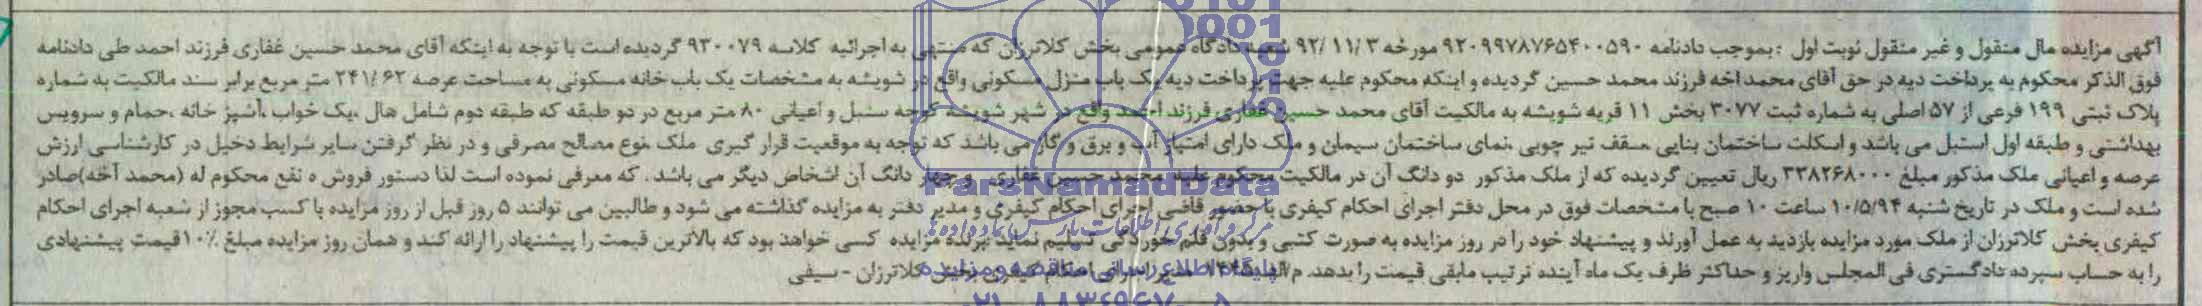 آگهی مزایده مال منقول و غیر منقول نوبت اول : بموجب دادنامه ۹۲۰۹۹۷۸۷۶۵۴۰۰۵۹۰ مورخه ۹۲/۱۱/۳ شعبه دادگاه عمومی بخش کلاترزان که منتهی به اجرائیه کلاسه ۹۳۰۰۷۹ گردیده است با توجه به اینکه آقای محمد حسین غفاری فرزند احمد طی دادنامه
فوق الذکر محکوم به پرداخت دیه در حق آقای محمد آخه فرزند محمد حسین گردیده و اینکه محکوم علیه جهت پرداخت دیه یک باب منزل مسکونی واقع در شویشه به مشخصات یک باب خانه مسکونی به مساحت عرصه ۲۴۱/۶۲ متر مربع برابر سند مالکیت به شماره
پلاک ثبتی ۱۹۹ فرعی از ۵۷ اصلی به شماره ثبت ۳۰۷۷ بخش ۱۱ قریه شویشه به مالکیت آقای محمد حسین غفاری فرزند احمد واقع در شهر شویشه کوچه سنبل و اعیانی ۸۰ متر مربع در دو طبقه که طبقه دوم شامل هال ،یک خواب ،آشپز خانه ،حمام و سرویس
بهداشتی و طبقه اول استبل می باشد و اسکلت ساختمان بنایی ،سقف تیر چوبی ،نمای ساختمان سیمان و ملک دارای امتیاز آب و برق و گاز می باشد که توجه به موقعیت قرار گیری ملک ،نوع مصالح مصرفی و در نظر گرفتن سایر شرایط دخیل در کارشناسی ارزش
عرصه و اعیانی ملک مذکور مبلغ ۳۳۸۲۶۸۰۰۰ ریال تعیین گردیده که از ملک مذکور دو دانگ آن در مالکیت محکوم علیه محمد حسین غفاری و چهار دانگ آن اشخاص دیگر می باشد . که معرفی نموده است لذا دستور فروش ه نفع محکوم له (محمد آخه)صادر
شده است و ملک در تاریخ شنبه ۱۰/۵/۹۴ ساعت ۱۰ صبح با مشخصات فوق در محل دفتر اجرای احکام کیفری با حضور قاضی اجرای احکام کیفری و مدیر دفتر به مزایده گذاشته می شود و طالبین می توانند ۵ روز قبل از روز مزایده با کسب مجوز از شعبه اجرای احکام
کیفری بخش کلاترزان از ملک مورد مزایده بازدید به عمل آورند و پیشنهاد خود را در روز مزایده به صورت کتبی و بدون قلم خوردگی تسلیم نمایند برنده مزایده کسی خواهد بود که بالاترین قیمت را پیشنهاد را ارائه کند و همان روز مزایده مبلغ ۱۰٪قیمت پیشنهادی
را به حساب سپرده دادگستری فی المجلس واریز و حداکثر ظرف یک ماه آینده ترتیب مابقی قیمت را بدهد. م/الف کلاترزان - سیفی
ParsNamadData
مرکز فرآوری اطلاعات پارس نماد داده ها
پایگاه اطلاع رسانی مناقصه و مزایده
۰۲۱-۸۸۳۴۹۶۷۰-۵